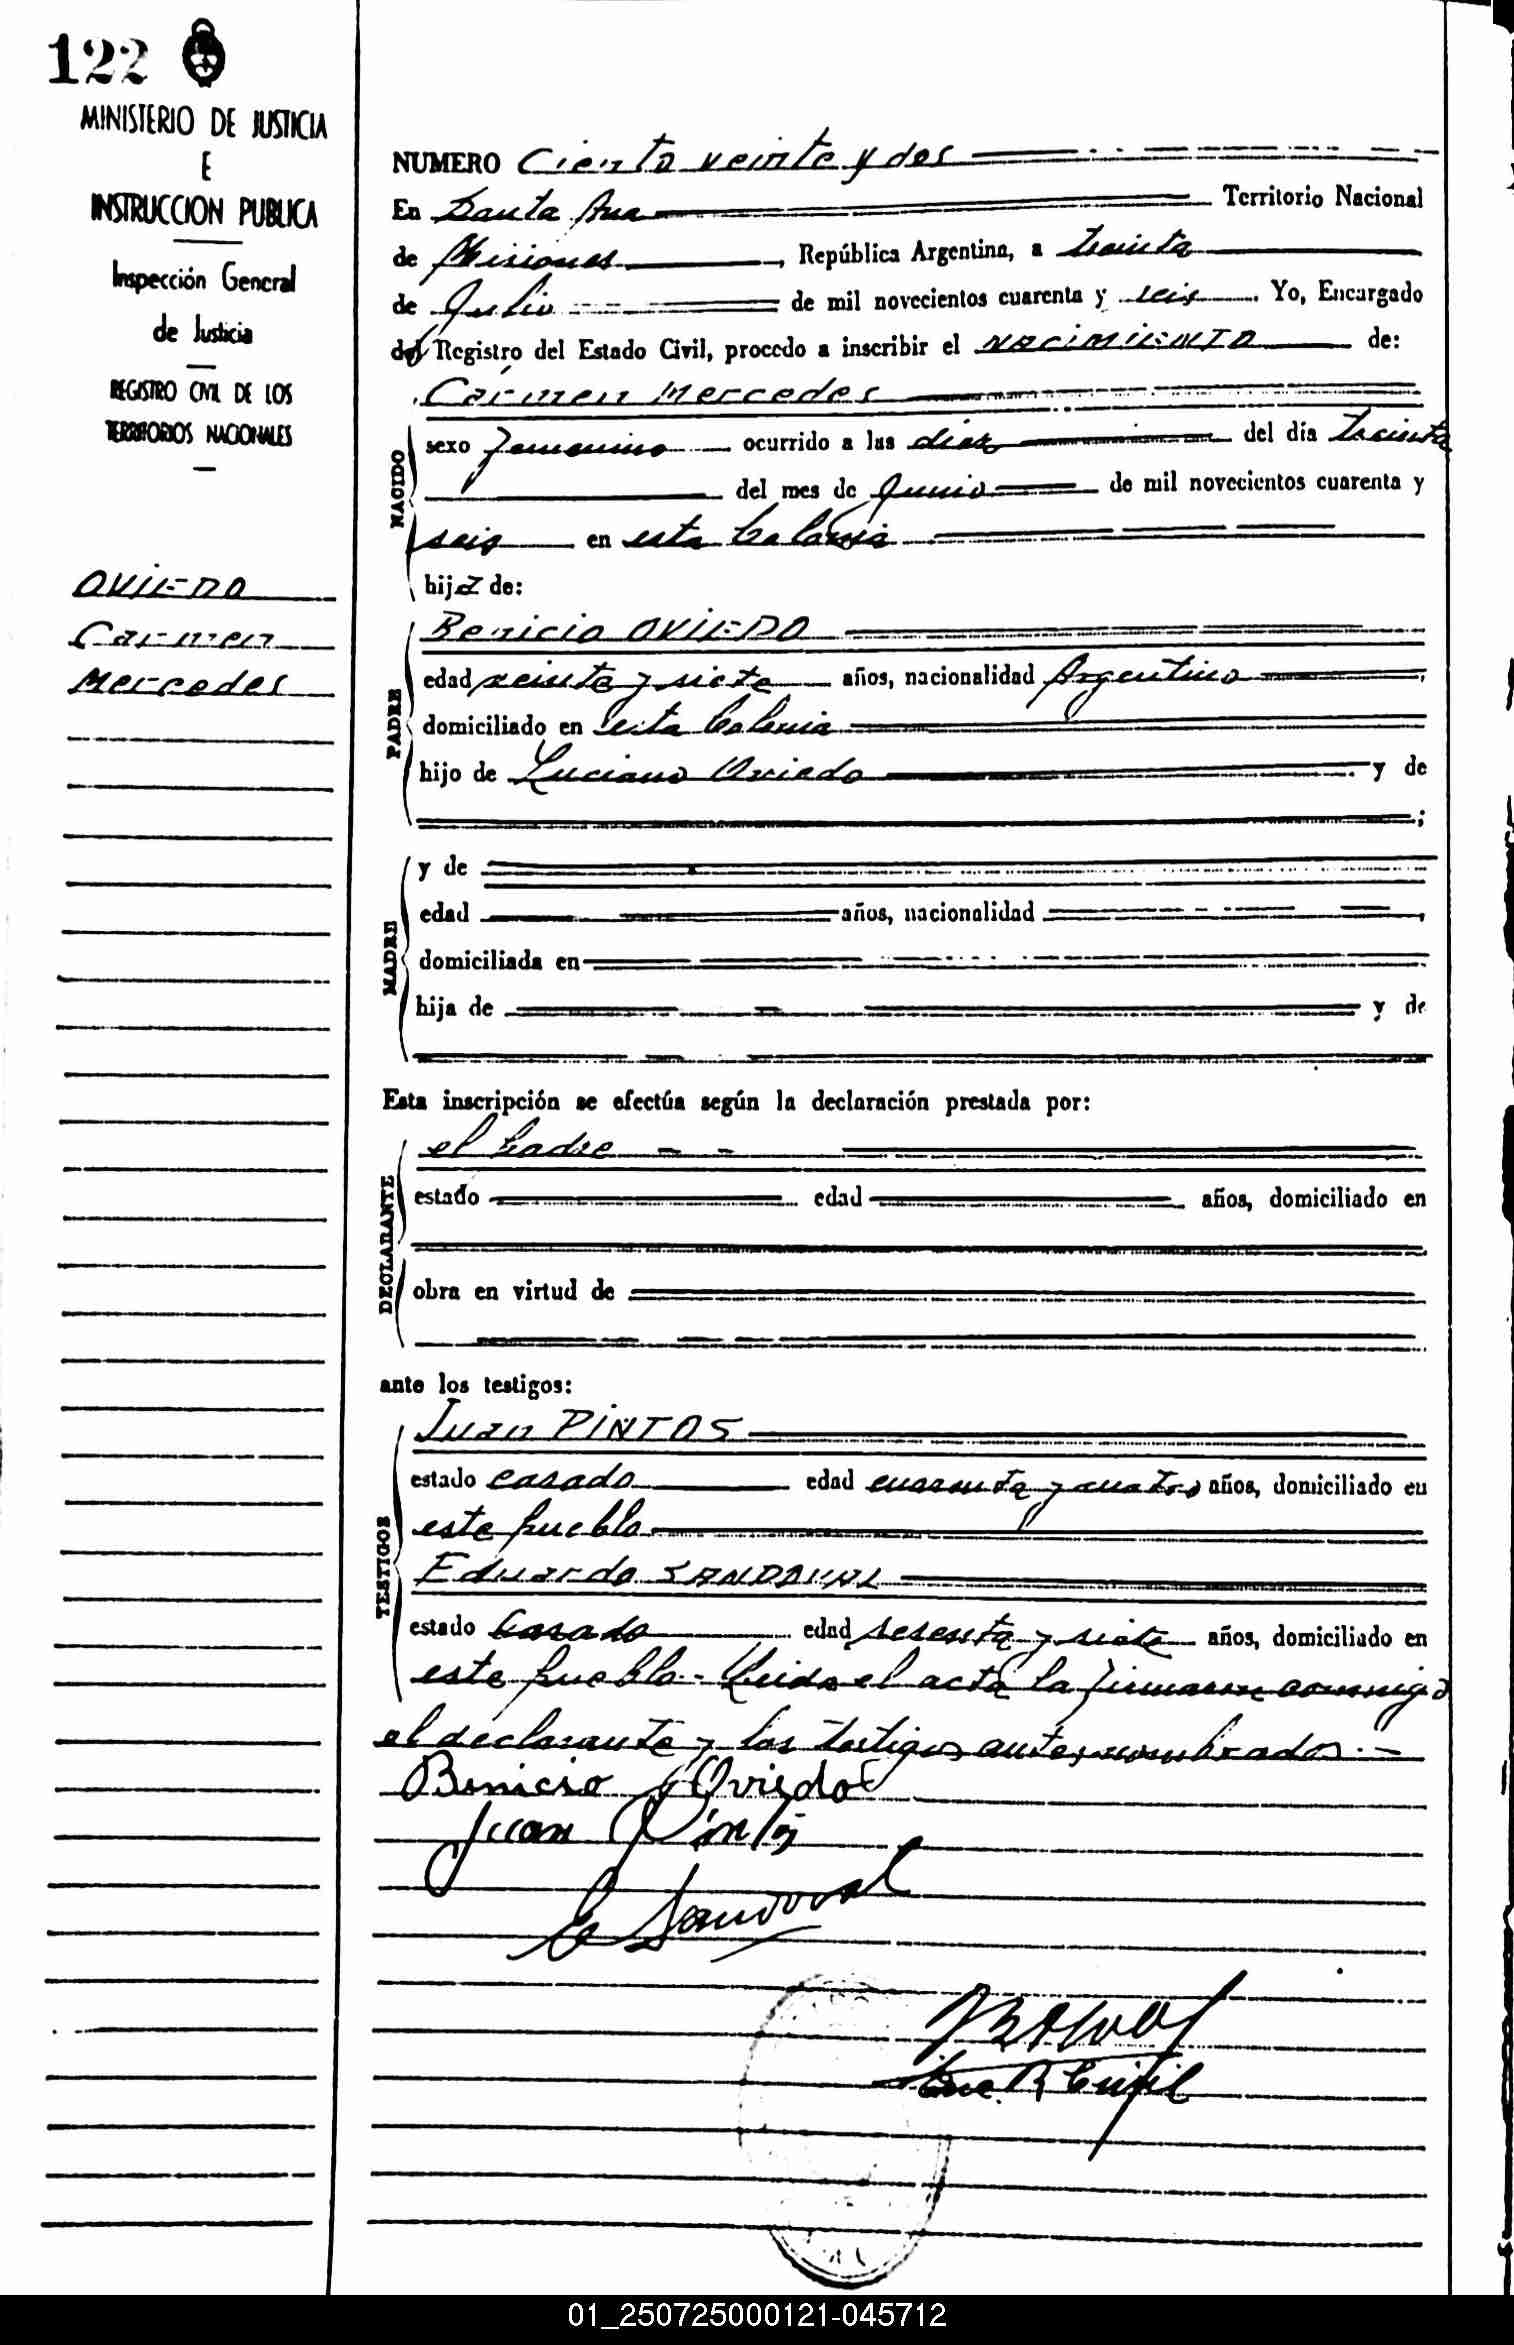 122
MINISTERIO DE JUSTICIA
E
INSTRUCCION PUBLICA
Inspección General
de Justicia
REGISTRO CIVIL DE LOS
TERRITORIOS NACIONALES
OVIEDO
Carmen
Mercedes
NUMERO Ciento veinte y dos
En Santa Ana Territorio Nacional
de Misiones, República Argentina, a treinta
de Julio de mil novecientos cuarenta y seis. Yo, Encargado
del Registro del Estado Civil, procedo a inscribir el NACIMIENTO de:
Cármen Mercedes
NACIDO
sexo femenino ocurrido a las diez del día treinta
del mes de Junio de mil novecientos cuarenta y
seis en esta Colonia
hija de:
PADRE
Benicio OVIEDO
edad veinte y siete años, nacionalidad Argentino,
domiciliado en esta Colonia
hijo de Luciano Oviedo y de
;
MADRE
y de
edad años, nacionalidad ,
domiciliada en
hija de y de
Esta inscripción se efectúa según la declaración prestada por:
DECLARANTE
el padre
estado edad años, domiciliado en
obra en virtud de
ante los testigos:
TESTIGOS
Juan PINTOS
estado casado edad cuarenta y cuatro años, domiciliado en
este pueblo
Eduardo SANDOVAL
estado Casado edad sesenta y siete años, domiciliado en
este pueblo.- Leida el acta la firmaron conmigo
el declarante y los testigos antes nombrados.-
Benicio Oviedo
Juan Pintos
E Sandoval
Enc. R Civil
01_250725000121-045712